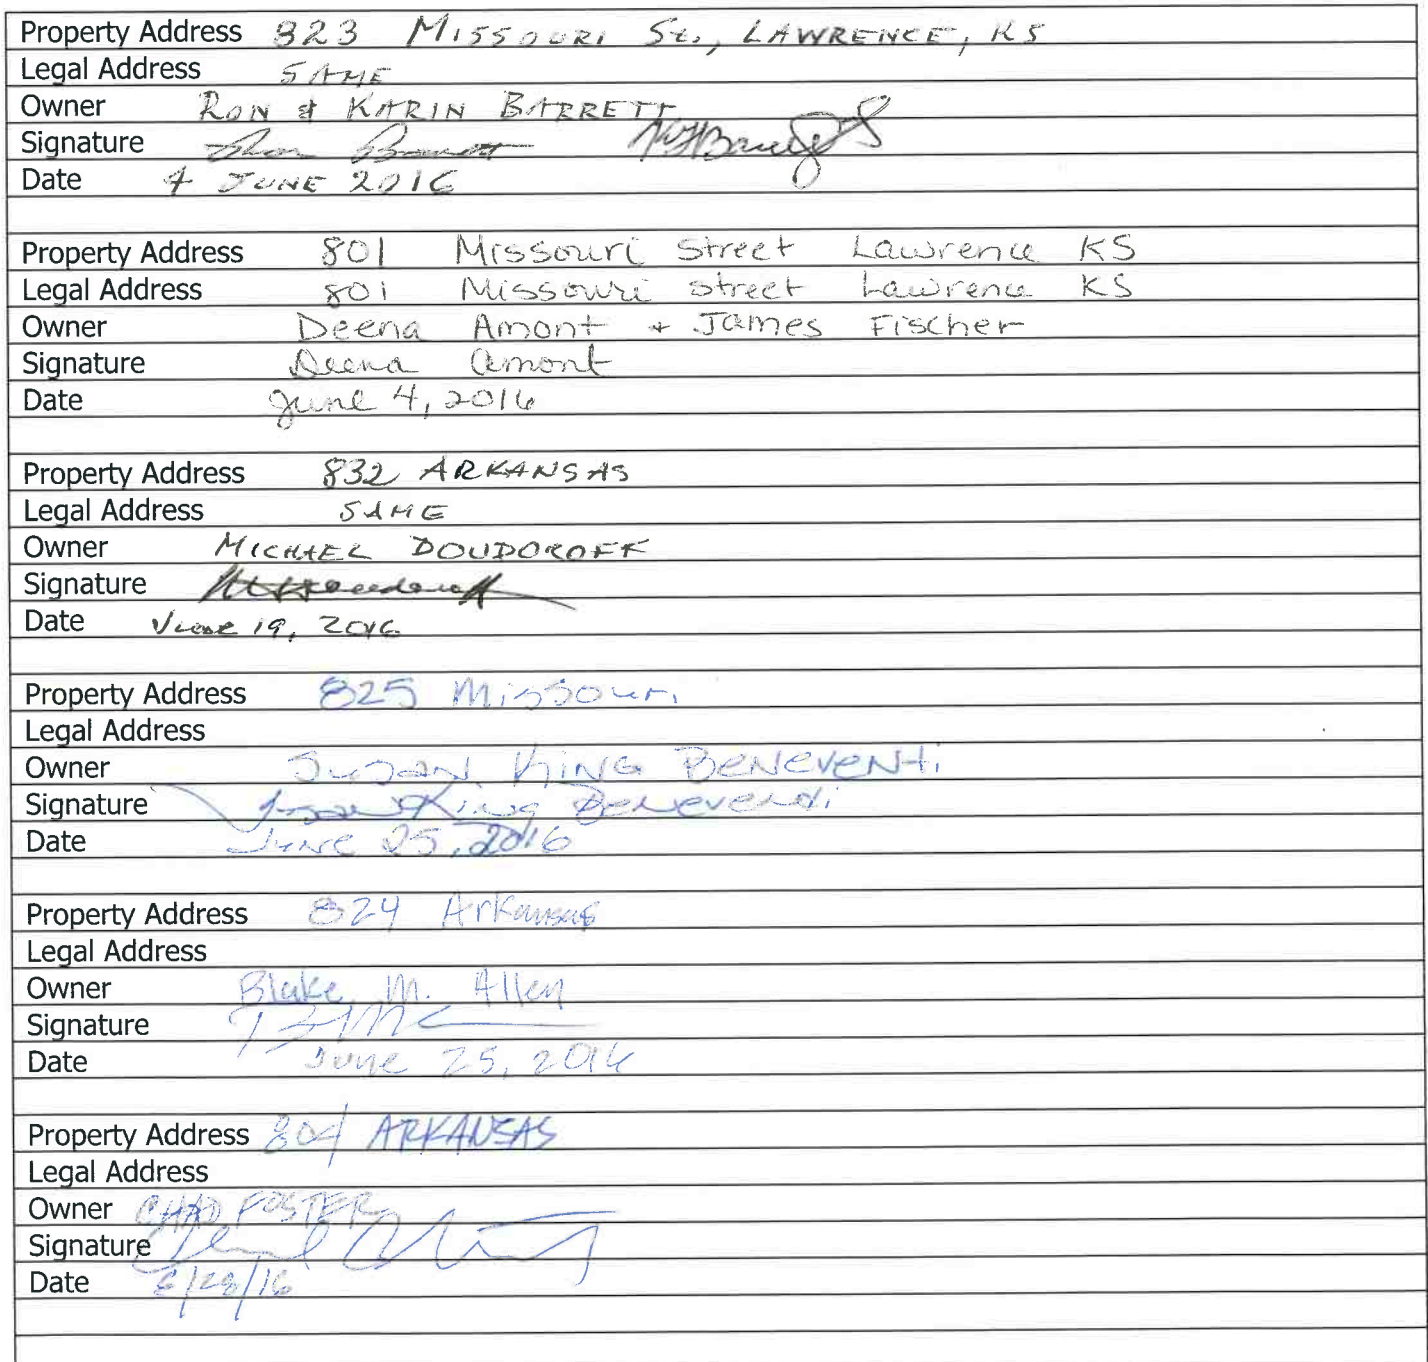 Property Address 823 MISSOURI ST., LAWRENCE, KS
Legal Address SAME
Owner RON & KARIN BARRETT
Signature
Date 4 JUNE 2016
Property Address 801 Missouri Street Lawrence KS
Legal Address 801 Missouri Street Lawrence KS
Owner Deena Amont + James Fischer
Signature Deena Amont
Date June 4, 2016
Property Address 832 ARKANSAS
Legal Address SAME
Owner MICHAEL DOUDOROFF
Signature
Date June 19, 2016
Property Address 825 Missouri
Legal Address
Owner Susan King Beneventi
Signature Susan King Beneventi
Date June 25, 2016
Property Address 824 Arkansas
Legal Address
Owner Blake M. Allen
Signature
Date June 25, 2016
Property Address 804 ARKANSAS
Legal Address
Owner CHAD FOSTER
Signature
Date